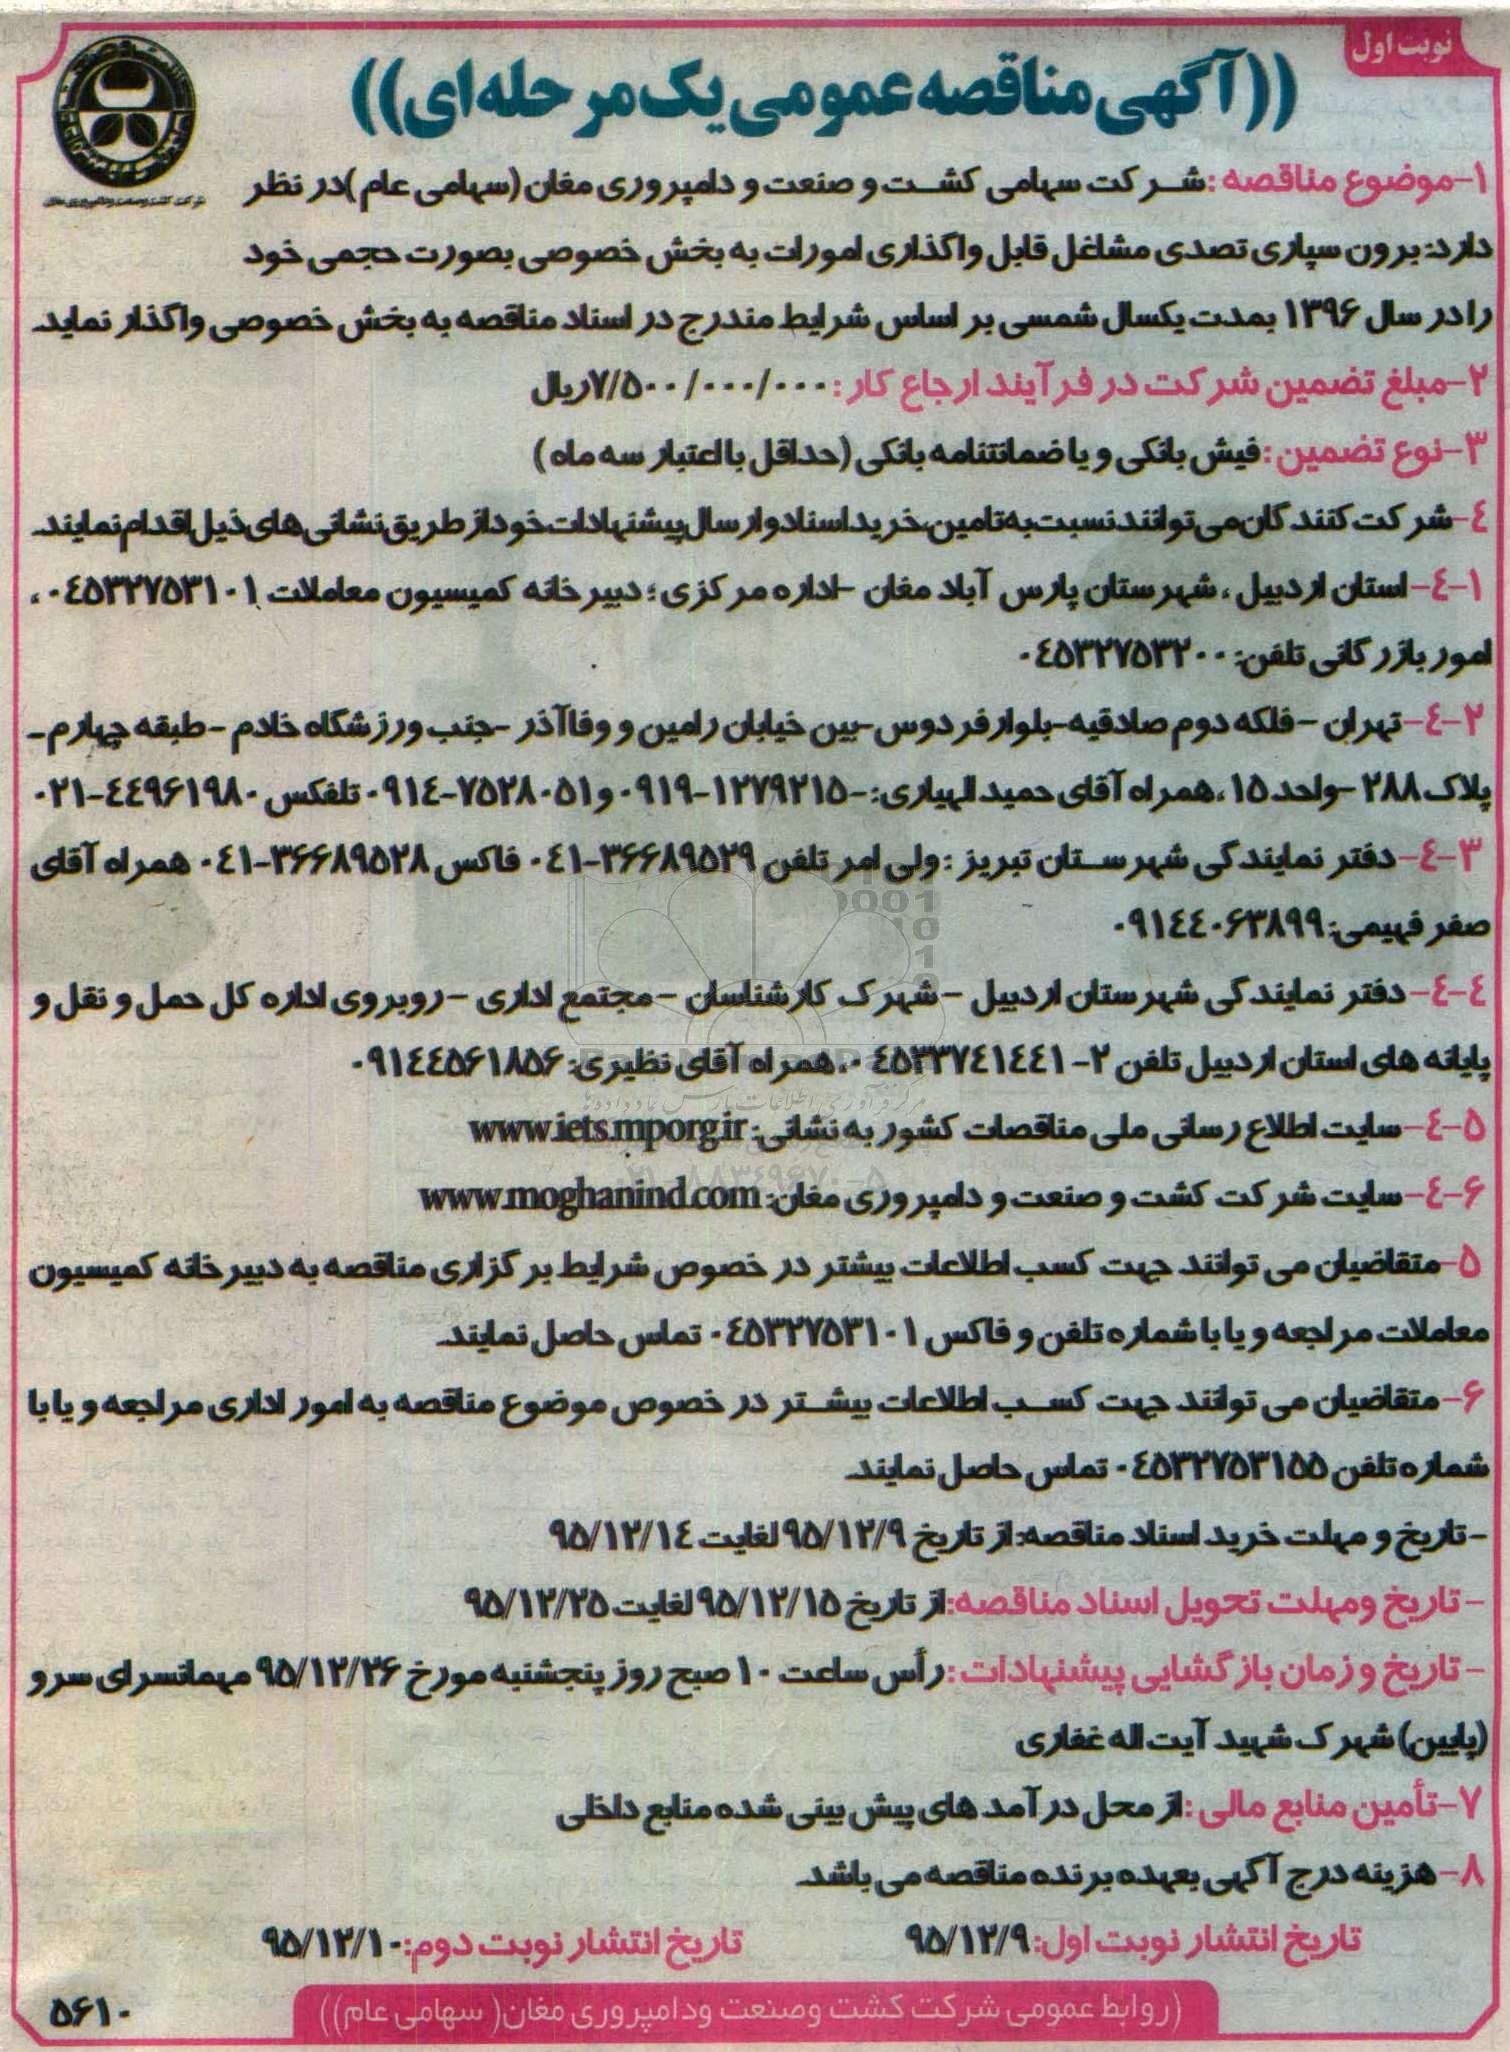 نوبت اول
((آگهی مناقصه عمومی یک مرحله ای))
۱-موضوع مناقصه :شرکت سهامی کشت و صنعت و دامپروری مغان (سهامی عام )در نظر
دارد: برون سپاری تصدی مشاغل قابل واگذاری امورات به بخش خصوصی بصورت حجمی خود
را در سال ۱۳۹۶ بمدت یکسال شمسی بر اساس شرایط مندرج در اسناد مناقصه به بخش خصوصی واگذار نماید.
۲-مبلغ تضمین شرکت در فرآیند ارجاع کار : ۷/۵۰۰/۰۰۰/۰۰۰ریال
۳-نوع تضمین :فیش بانکی و یا ضمانتنامه بانکی (حداقل با اعتبار سه ماه )
٤-شرکت کنندگان می توانند نسبت به تامین، خرید اسناد و ارسال پیشنهادات خود از طریق نشانی های ذیل اقدام نمایند.
۱-٤- استان اردبیل ، شهرستان پارس آباد مغان -اداره مرکزی ؛ دبیرخانه کمیسیون معاملات ۰٤۵۳۲۷۵۳۱۰۱ ،
امور بازرگانی تلفن: ۰٤۵۳۲۷۵۳۲۰۰
۲-٤- تهران -فلکه دوم صادقیه-بلوار فردوس-بین خیابان رامین و وفاآذر -جنب ورزشگاه خادم -طبقه چهارم-
پلاک ۲۸۸ -واحد ۱۵ ،همراه آقای حمید الهیاری: -۱۲۷۹۲۱۵-۰۹۱۹ و ۷۵۲۸۰۵۱-۰۹۱٤ تلفکس ٤٤۹۶۱۹۸۰-۰۲۱
۳-٤- دفتر نمایندگی شهرستان تبریز : ولی امر تلفن ۳۶۶۸۹۵۲۹-۰٤۱ فاکس ۳۶۶۸۹۵۲۸-۰٤۱ همراه آقای
صفر فهیمی: ۰۹۱٤٤۰۶۳۸۹۹
٤-٤- دفتر نمایندگی شهرستان اردبیل -شهرک کارشناسان -مجتمع اداری -روبروی اداره کل حمل و نقل و
پایانه های استان اردبیل تلفن ۲- ۰٤۵۳۳۷٤۱٤٤۱ ،همراه آقای نظیری: ۰۹۱٤٤۵۶۱۸۵۶
۵-٤- سایت اطلاع رسانی ملی مناقصات کشور به نشانی: www.iets.mporg.ir
۶-٤- سایت شرکت کشت و صنعت و دامپروری مغان: www.moghanind.com
۵-متقاضیان می توانند جهت کسب اطلاعات بیشتر در خصوص شرایط برگزاری مناقصه به دبیرخانه کمیسیون
معاملات مراجعه و یا با شماره تلفن و فاکس ۰٤۵۳۲۷۵۳۱۰۱ تماس حاصل نمایند.
۶- متقاضیان می توانند جهت کسب اطلاعات بیشتر در خصوص موضوع مناقصه به امور اداری مراجعه و یا با
شماره تلفن ۰٤۵۳۲۷۵۳۱۵۵ تماس حاصل نمایند.
-تاریخ و مهلت خرید اسناد مناقصه: از تاریخ ۹۵/۱۲/۹ لغایت ۹۵/۱۲/۱٤
- تاریخ ومهلت تحویل اسناد مناقصه: از تاریخ ۹۵/۱۲/۱۵ لغایت ۹۵/۱۲/۲۵
- تاریخ و زمان بازگشایی پیشنهادات : رأس ساعت ۱۰ صبح روز پنجشنبه مورخ ۹۵/۱۲/۲۶ مهمانسرای سرو
(پایین) شهرک شهید آیت اله غفاری
۷-تأمین منابع مالی :از محل درآمد های پیش بینی شده منابع داخلی
۸- هزینه درج آگهی بعهده برنده مناقصه می باشد.
تاریخ انتشار نوبت اول: ۹۵/۱۲/۹ تاریخ انتشار نوبت دوم: ۹۵/۱۲/۱۰
(روابط عمومی شرکت کشت وصنعت ودامپروری مغان( سهامی عام))
۵۶۱۰